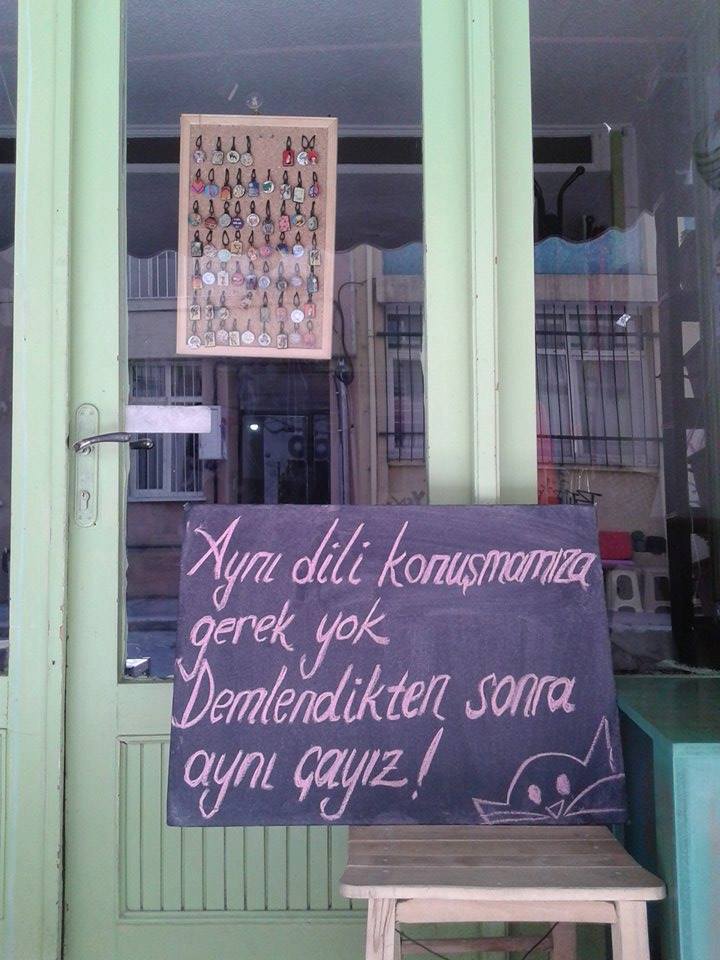 Aynı dili konuşmamıza
gerek yok
Demlendikten sonra
aynı çayız!